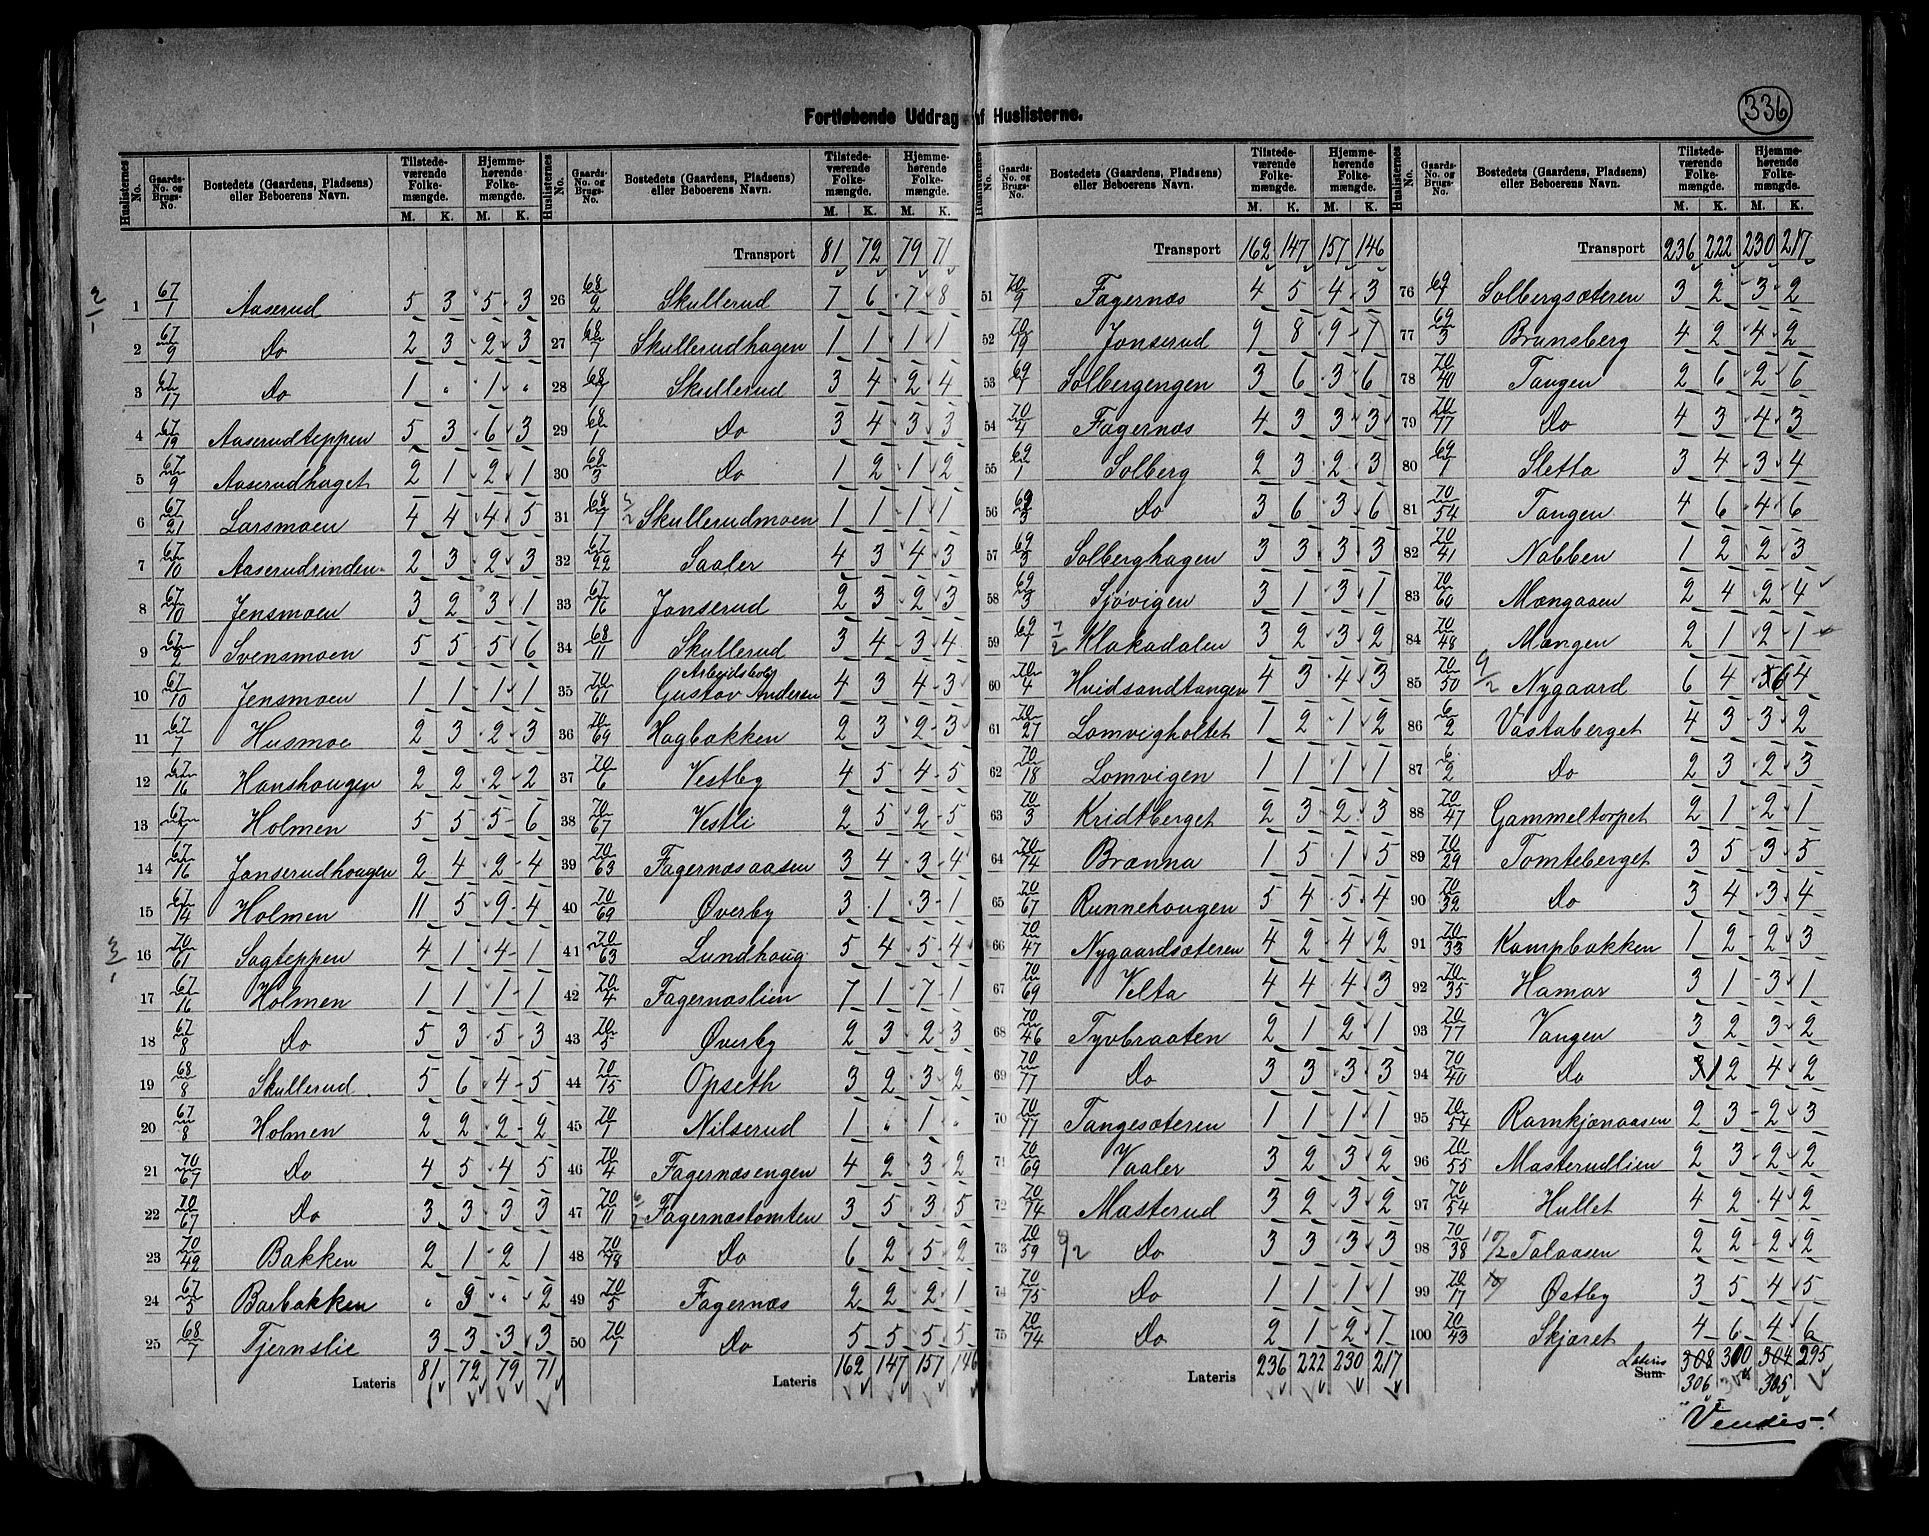 336
Fortløbende Uddrag af Huslisterne.
Huslisternes No. | Gaards-No. og Brugs-No. | Bostedets (Gaardens, Pladsens) eller Beboerens Navn. | Tilstedeværende Folkemængde. M. K. | Hjemmehørende Folkemængde. M. K.
1 67/1 Aaserud 5 3 5 3
2 67/9 Do 2 3 2 3
3 67/17 Do 1 " 1 "
4 67/19 Aaserudteppen 5 3 6 3
5 67/9 Aaserudhaget 2 1 2 1
6 67/21 Larsmoen 4 4 4 5
7 67/10 Aaserudrinden 2 3 2 3
8 67/10 Jensmoen 3 2 3 1
9 67/2 Svensmoen 5 5 5 6
10 67/10 Jensmoen 1 1 1 1
11 67/7 Husmoe 2 3 2 3
12 67/16 Hanshougen 2 2 2 2
13 67/7 Holmen 5 5 5 6
14 67/16 Jonserudhougen 2 4 2 4
15 67/14 Holmen 11 5 9 4
16 70/61 Sagteppen 4 1 4 1
17 67/16 Holmen 1 1 1 1
18 67/8 Do 5 3 5 3
19 68/8 Skullerud 5 6 4 5
20 67/8 Holmen 2 2 2 2
21 70/67 Do 4 5 4 5
22 70/67 Do 3 3 3 3
23 70/42 Bakken 2 1 2 1
24 67/5 Barbakken " 3 " 2
25 68/7 Tjernslie 3 3 3 3
Lateris 81 72 79 71
Transport 81 72 79 71
26 68/2 Skullerud 7 6 7 8
27 68/7 Skullerudhagen 1 1 1 1
28 68/7 Skullerud 3 4 2 4
29 68/1 Do 3 4 3 3
30 68/3 Do 1 2 1 2
31 68/7 Skullerudmoen 1 1 1 1
32 67/22 Saaler 4 3 4 3
33 67/16 Jonserud 2 3 2 3
34 68/11 Skullerud 3 4 3 4
35 70/61 Arbeidsbol Gustav Andersen 4 3 4 3
36 70/69 Hagbakken 2 3 2 3
37 70/6 Vestby 4 5 4 5
38 70/67 Vestli 2 5 2 5
39 70/63 Fagernæsaasen 3 4 3 4
40 70/69 Øverby 3 1 3 1
41 70/63 Lundhoug 5 4 5 4
42 70/4 Fagernæslien 7 1 7 1
43 70/5 Øverby 2 3 2 3
44 70/15 Opseth 3 2 3 2
45 70/1 Nilserud 1 " 1 "
46 70/4 Fagernæsengen 4 2 3 2
47 70/11 Fagernæstomten 3 5 3 5
48 70/78 Do 6 2 5 2
49 70/5 Fagernæs 2 2 2 1
50 70/1 Do 5 5 5 5
Lateris 162 147 157 146
Transport 162 147 157 146
51 70/9 Fagernæs 4 5 4 3
52 70/19 Jonserud 9 8 9 7
53 69/1 Solbergengen 3 6 3 6
54 70/4 Fagernæs 4 3 3 3
55 69/1 Solberg 2 3 2 3
56 69/3 Do 3 6 3 6
57 69/3 Solberghagen 3 3 3 3
58 69/3 Sjøvigen 3 1 3 1
59 69/1 Klokadalen 3 2 3 2
60 70/4 Hvidsandtangen 4 3 4 3
61 70/27 Lomvigholtet 1 2 1 2
62 70/18 Lomvigen 1 1 1 1
63 70/3 Kridtberget 2 3 2 3
64 70/74 Brænna 1 5 1 5
65 70/67 Runnehougen 5 4 5 4
66 70/47 Nygaardsæteren 4 2 4 2
67 70/69 Velta 4 4 4 3
68 70/46 Tyvbraaten 2 1 2 1
69 70/77 Do 3 3 3 3
70 70/77 Tangesæteren 1 1 1 1
71 70/69 Vaaler 3 2 3 2
72 70/74 Masterud 3 2 3 2
73 70/59 Do 3 3 3 3
74 70/75 Do 1 1 1 1
75 70/74 Do 2 1 2 1
Lateris 236 222 230 217
Transport 236 222 230 217
76 69/1 Solbergsæteren 3 2 3 2
77 69/3 Brunsberg 4 2 4 2
78 70/40 Tangen 2 6 2 6
79 70/77 Do 4 3 4 3
80 69/1 Sletta 3 4 3 4
81 70/54 Tangen 4 6 4 6
82 70/41 Nabben 1 2 2 3
83 70/60 Mængaaen 2 4 2 4
84 70/48 Mængen 2 1 2 1
85 70/50 Nygaard 6 4 6 4
86 6/2 Vastaberget 4 3 3 2
87 6/2 Do 2 3 2 3
88 70/47 Gammeltorpet 2 1 2 1
89 70/29 Tomteberget 3 5 3 5
90 70/32 Do 3 4 3 4
91 70/33 Kampbakken 1 2 2 3
92 70/35 Hamar 3 1 3 1
93 70/77 Vangen 3 2 3 2
94 70/40 Do 1 2 4 2
95 70/54 Ramkjønaasen 2 3 2 3
96 70/55 Masterudlien 2 3 2 2
97 70/54 Hullet 4 2 4 2
98 70/38 Talaasen 2 2 2 2
99 70/17 Østby 3 5 4 5
100 70/43 Skjæret 4 6 4 6
Lateris Sum 308 300 304 295
306 305
"Vendes!"